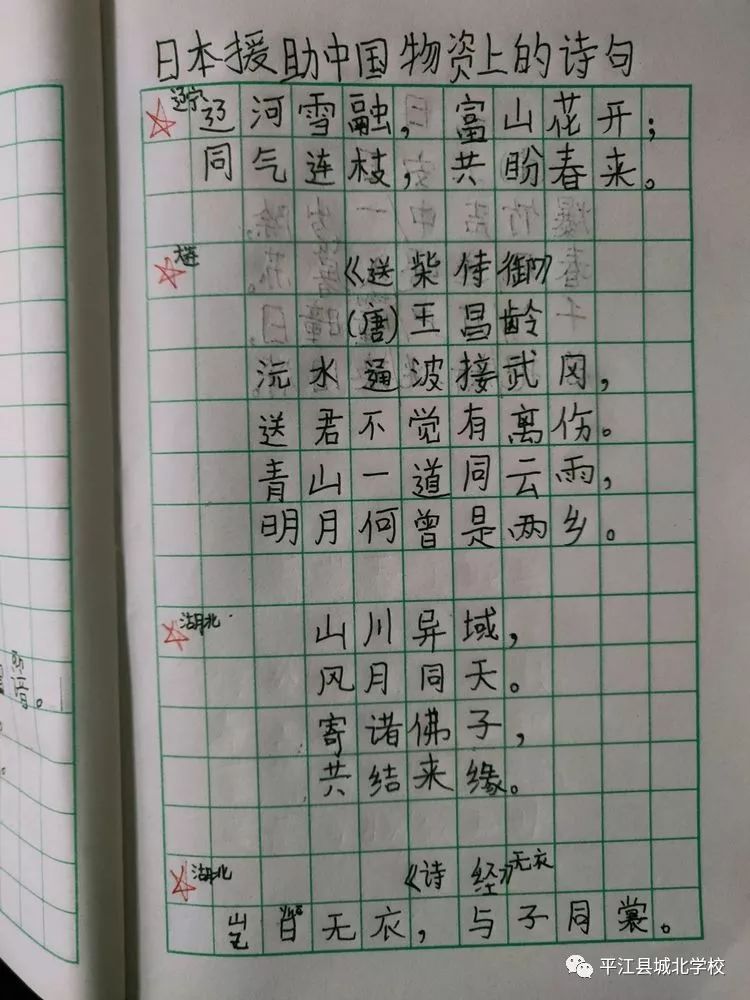 日本援助中国物资上的诗句
辽宁
辽河雪融，富山花开；
同气连枝，共盼春来。
大连
《送柴侍御》
(唐)王昌龄
沅水通波接武冈，
送君不觉有离伤。
青山一道同云雨，
明月何曾是两乡。
湖北
山川异域，
风月同天。
寄诸佛子，
共结来缘。
湖北
《诗经》无衣
岂曰无衣，与子同裳。
平江县城北学校